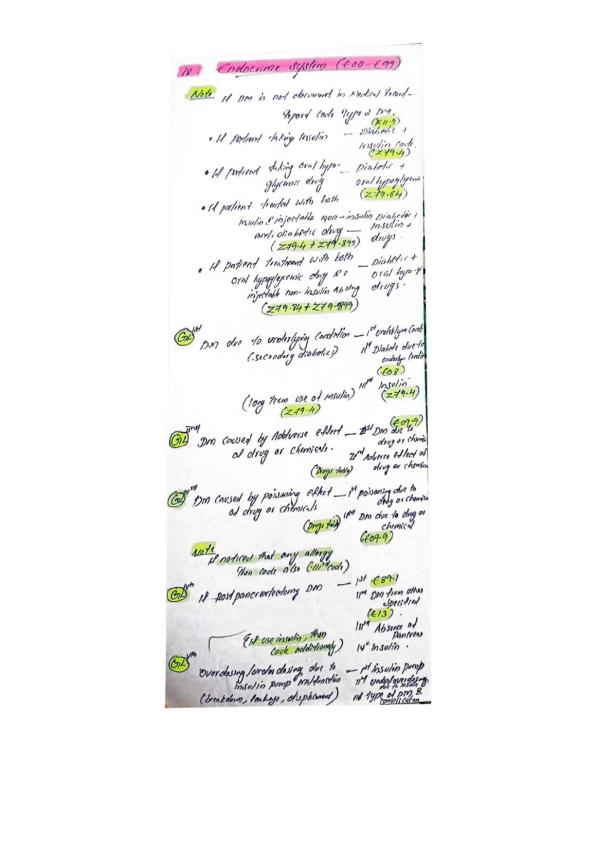 18. Endocrine System (E00-E99)
Note If DM is not document in Medical Record -
Report code Type 2 DM.
(E11.9)
• If patient taking Insulin — Diabetic +
Insulin code
(Z79.4)
• If patient taking oral hypo- — Diabetic +
glycemic drug oral hypoglycemic
(Z79.84)
• If patient treated with both
Insulin & injectable non-insulin Diabetic +
anti diabetic drug — Insulin +
(Z79.4 + Z79.899) drugs.
• If patient treatment with both — Diabetic +
oral hypoglycemic drug & oral hypo-g
injectable non-Insulin drug drugs.
(Z79.84 + Z79.899)
GL Ist DM due to underlying Condition — Ist underlying Cond
(secondary diabetics) IInd Diabete due to
underlyn Condition
(E08)
IIIrd Insulin
(long term use of insulin) (Z79.4)
(Z79.4)
(E09.9)
GL IInd DM caused by Adverse effect — Ist DM due to
of drug or chemicals. drug or chemic
IInd Adverse Effect of
(Drugs table) drug or chemica
GL IIIrd DM caused by poisoning effect — Ist poisoning due to
of drug or chemicals drug or chemica
(Drugs table) IInd DM due to drug or
chemical
(E09.9)
Note
If noticed that any allergy
Then code also (IIIrd code)
GL IVth If Postpancreatectomy DM — Ist E89.1
IInd DM from other
Specified
(E13).
IIIrd Absence of
Pancreas
(If use insulin, then IVth Insulin.
code additionaly)
GL Vth Overdosing/underdosing due to — Ist Insulin pump
insulin pump malfunction IInd under/overdosing
due to insulin
(breakdown, leakage, displacement) III Type of DM &
complication